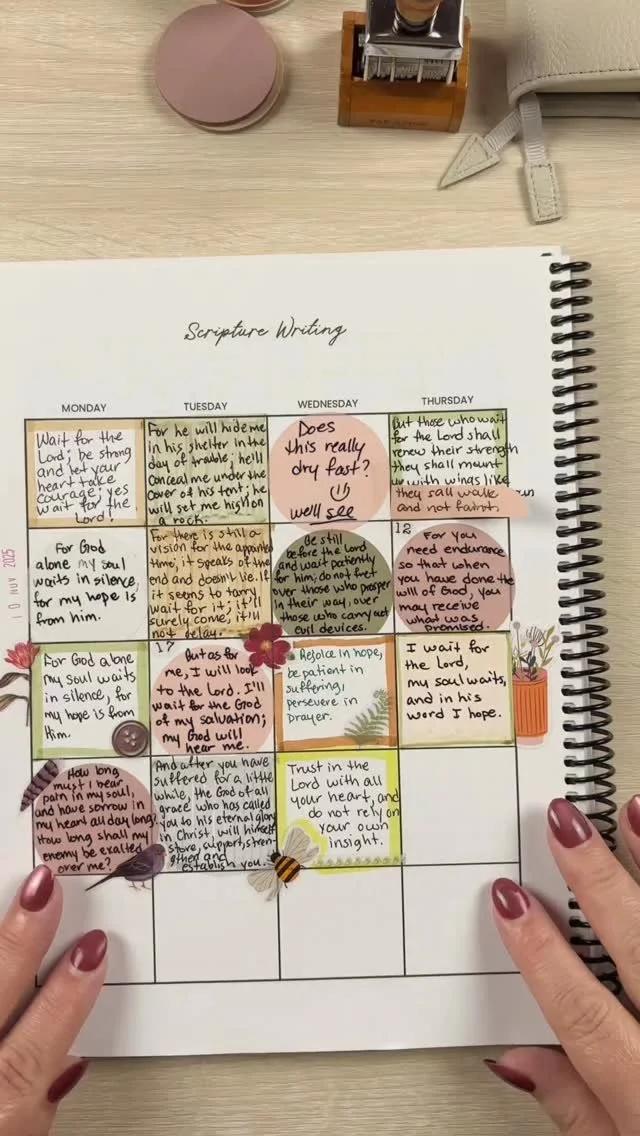 Scripture Writing
MONDAY
TUESDAY
WEDNESDAY
THURSDAY
Wait for the
Lord; be strong
and let your
heart take
courage; yes
wait for the
Lord!
For he will hide me
in his shelter in the
day of trouble; he'll
conceal me under the
cover of his tent; he
will set me high on
a rock.
Does
this really
dry fast?
we'll see
But those who wait
for the Lord shall
renew their strength
they shall mount
up with wings like
run
they sall walk
and not faint.
10 NOV 2025
For God
alone my soul
waits in silence,
for my hope is
from him.
For there is still a
vision for the appointed
time; it speaks of the
end and doesn't lie. If
it seems to tarry
wait for it; it'll
surely come, it'll
not delay.
Be still
before the Lord
and wait patiently
for him; do not fret
over those who prosper
in their way, over
those who carry out
evil devices.
12
For you
need endurance
so that when
you have done the
will of God, you
may receive
what was
promised.
For God alone
my soul waits
in silence, for
my hope is from
him.
17
But as for
me, I will look
to the Lord. I'll
wait for the God
of my salvation;
my God will
hear me.
Rejoice in hope,
be patient in
suffering,
persevere in
prayer.
I wait for
the Lord,
my soul waits,
and in his
word I hope.
How long
must I bear
pain in my soul,
and have sorrow in
my heart all day long?
How long shall my
enemy be exalted
over me?
And after you have
suffered for a little
while, the God of all
grace who has called
you to his eternal glory
in Christ, will himself
store, support, stren-
gthen and
establish you.
Trust in the
Lord with all
your heart, and
do not rely on
your own
insight.